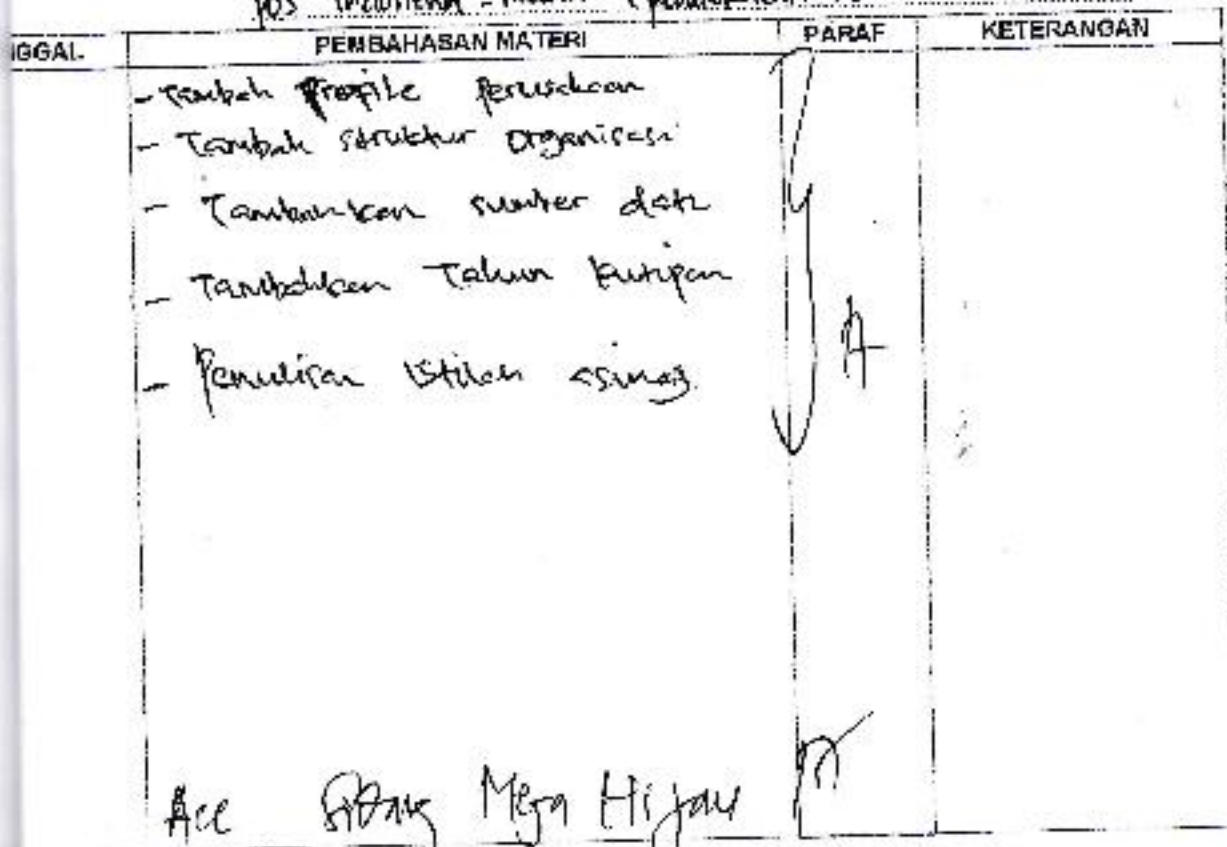 pos
NGGAL PEMBAHASAN MATERI PARAF KETERANGAN
- Tambah Profile perusahaan
- Tambah struktur organisasi
- Tambahkan sumber data
- Tambahkan Tahun kutipan
- Penulisan istilah asing
Acc Sidang Meja Hijau